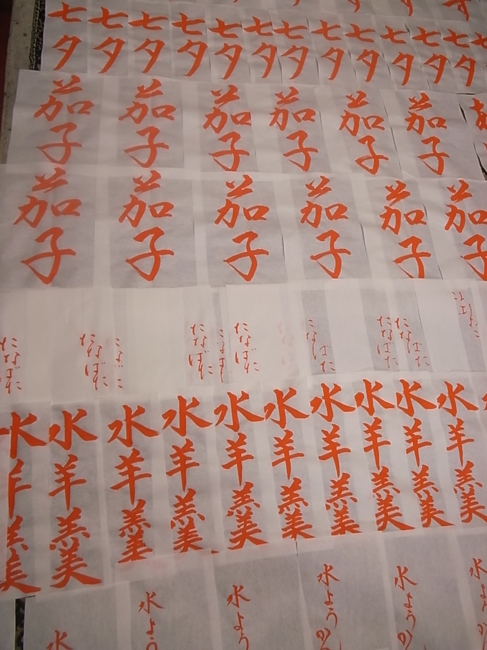 七夕
七夕
七夕
七夕
七夕
七夕
七夕
七夕
七夕
七夕
七夕
茄子
茄子
茄子
茄子
茄子
茄子
茄子
茄子
茄子
茄子
茄子
茄子
たなばた
たなばた
たなばた
たなばた
たなばた
たなばた
水羊羹
水羊羹
水羊羹
水羊羹
水羊羹
水羊羹
水羊羹
水羊羹
水羊羹
水羊羹
水
水よう
水よう
水ようか
水よう